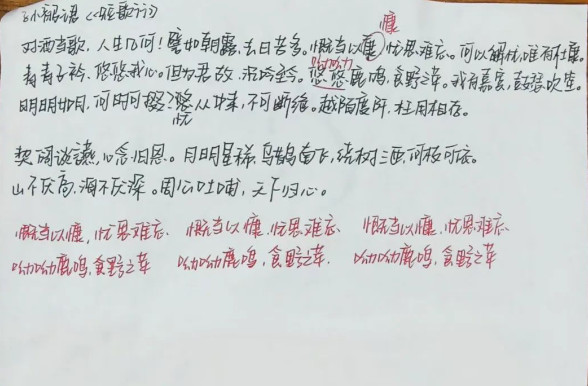 小码语 《短歌行》
慷
对酒当歌,人生几何!譬如朝露,去日苦多。慨当以慷,忧思难忘。可以解忧,唯有杜康。
呦呦
青青子衿,悠悠我心。但为君故,沉吟至今。悠悠鹿鸣,食野之苹。我有嘉宾,鼓瑟吹笙。
明明如月,何时可掇?悠从中来,不可断绝。越陌度阡,枉用相存。
忧
契阔谈讌,心念旧恩。月明星稀,乌鹊南飞,绕树三匝,何枝可依。
山不厌高,海不厌深。周公吐哺,天下归心。
慨当以慷,忧思难忘. 慨当以慷,忧思难忘. 慨当以慷,忧思难忘
呦呦鹿鸣,食野之苹 呦呦鹿鸣,食野之苹. 呦呦鹿鸣,食野之苹